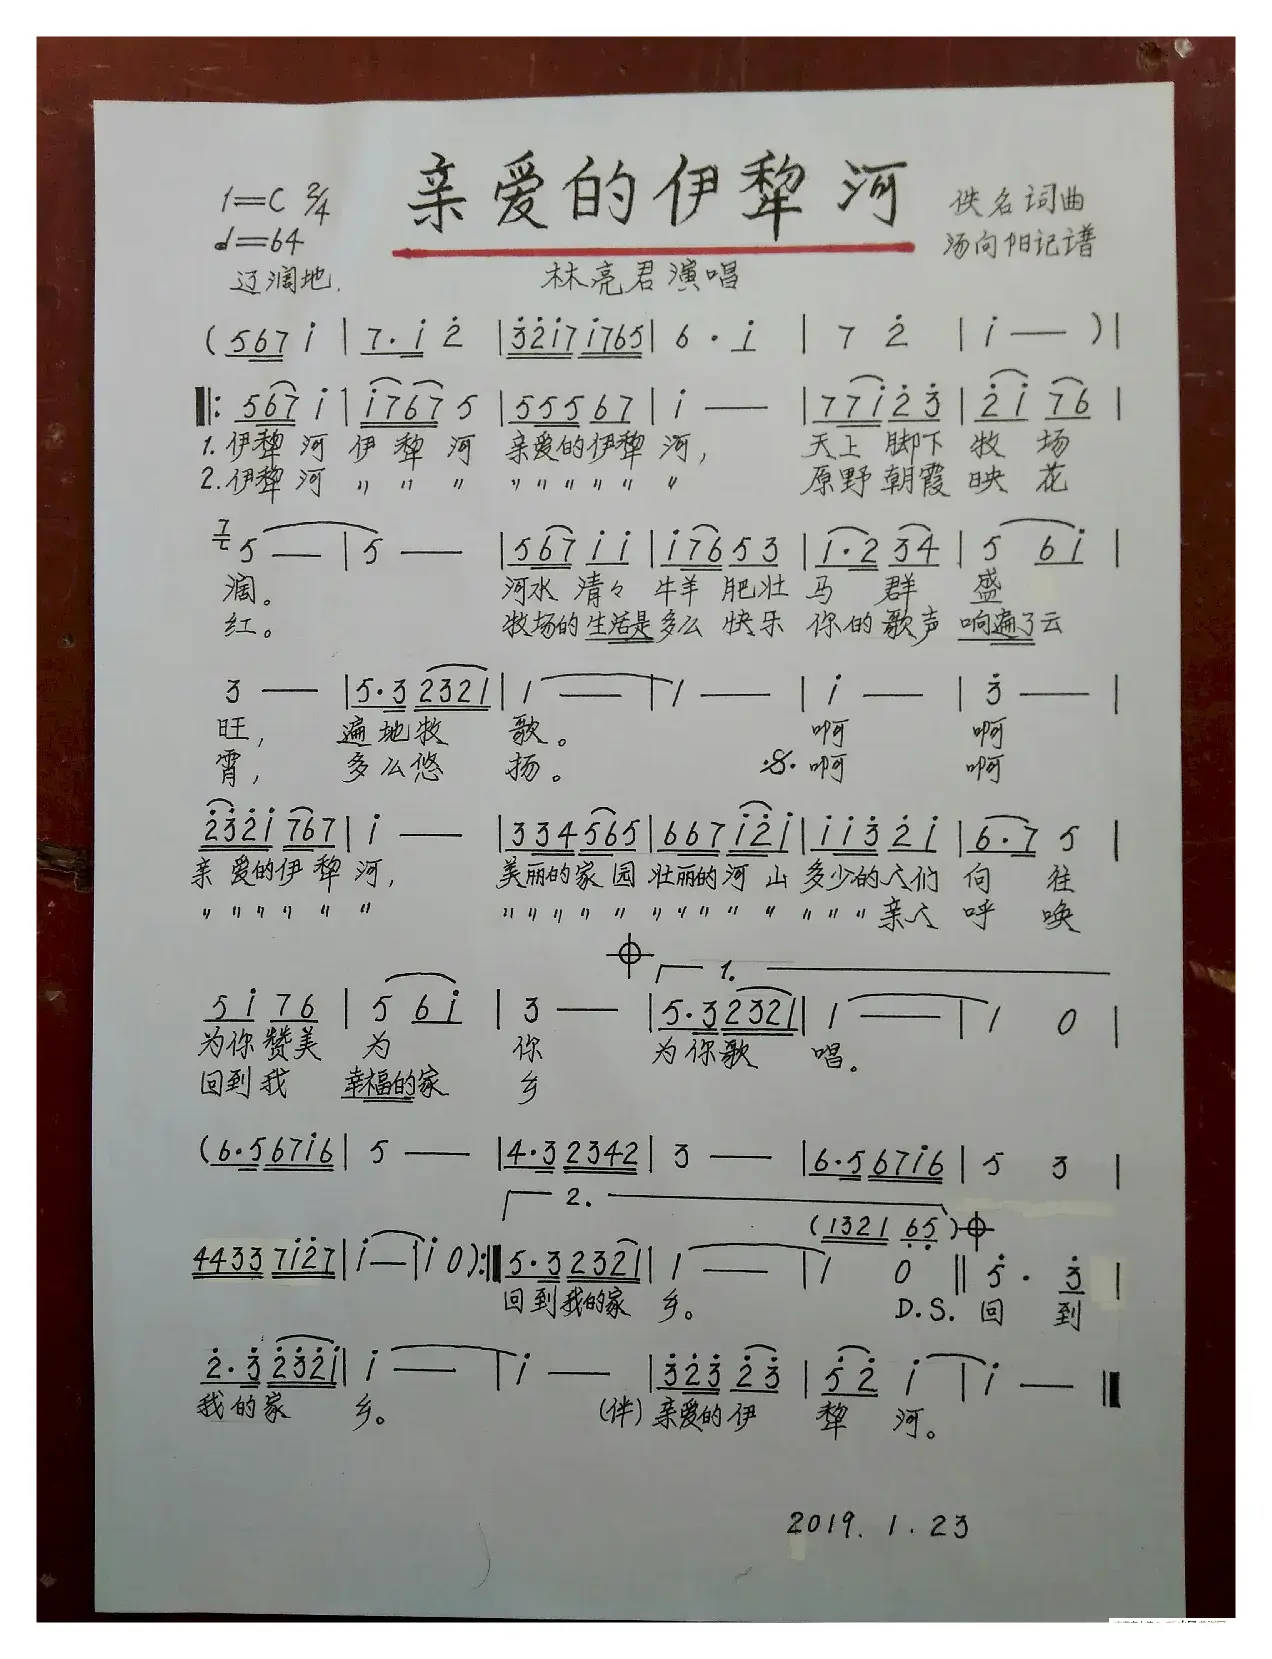 亲爱的伊犂河
1=C 2/4
♩=64
辽阔地.
佚名词曲
汤向阳记谱
林亮君演唱
(567 i | 7·i 2 | 3217 1765 | 6·i | 7 2 | i — )|
‖: 567 i | i767 5 | 555 67 | i — | 77i 23 | 2i 76 |
1.伊犂河 伊犂河 亲爱的伊犂河, 天上脚下牧场
2.伊犂河 〃〃〃 〃〃〃〃〃〃 原野朝霞映花
5 — | 5 — | 567 ii | i76 53 | 1·2 34 | 5 6i |
阔。 河水清々牛羊肥壮马群盛
红。 牧场的生活是多么快乐你的歌声响遍了云
3 — | 5·3 2321 | 1 — | 1 — | i — | 3 — |
旺, 遍地牧歌。 啊 啊
霄, 多么悠扬。 𝄋 啊 啊
2321 767 | i — | 334 565 | 667 i2i | ii3 2i | 6·7 5 |
亲爱的伊犂河, 美丽的家园壮丽的河山多少的人们向往
〃〃〃〃〃〃 〃〃〃〃〃〃〃〃〃〃〃〃〃亲人呼唤
1.
5i 76 | 5 6i | 3 — | 5·3 2321 | 1 — | 1 0 |
为你赞美为你 为你歌唱。
回到我幸福的家乡
(6·5 6716 | 5 — | 4·3 2342 | 3 — | 6·5 6716 | 5 3 |
2.
(1321 65)
4433 7i27 | i — | i 0):‖ 5·3 2321 | 1 — | 1 0 ‖ 5· 3 |
回到我的家乡。 D.S. 回到
2·3 2321 | i — | i — | 323 23 | 52 i | i — ‖
我的家乡。 (伴)亲爱的伊犂河。
2019.1.23